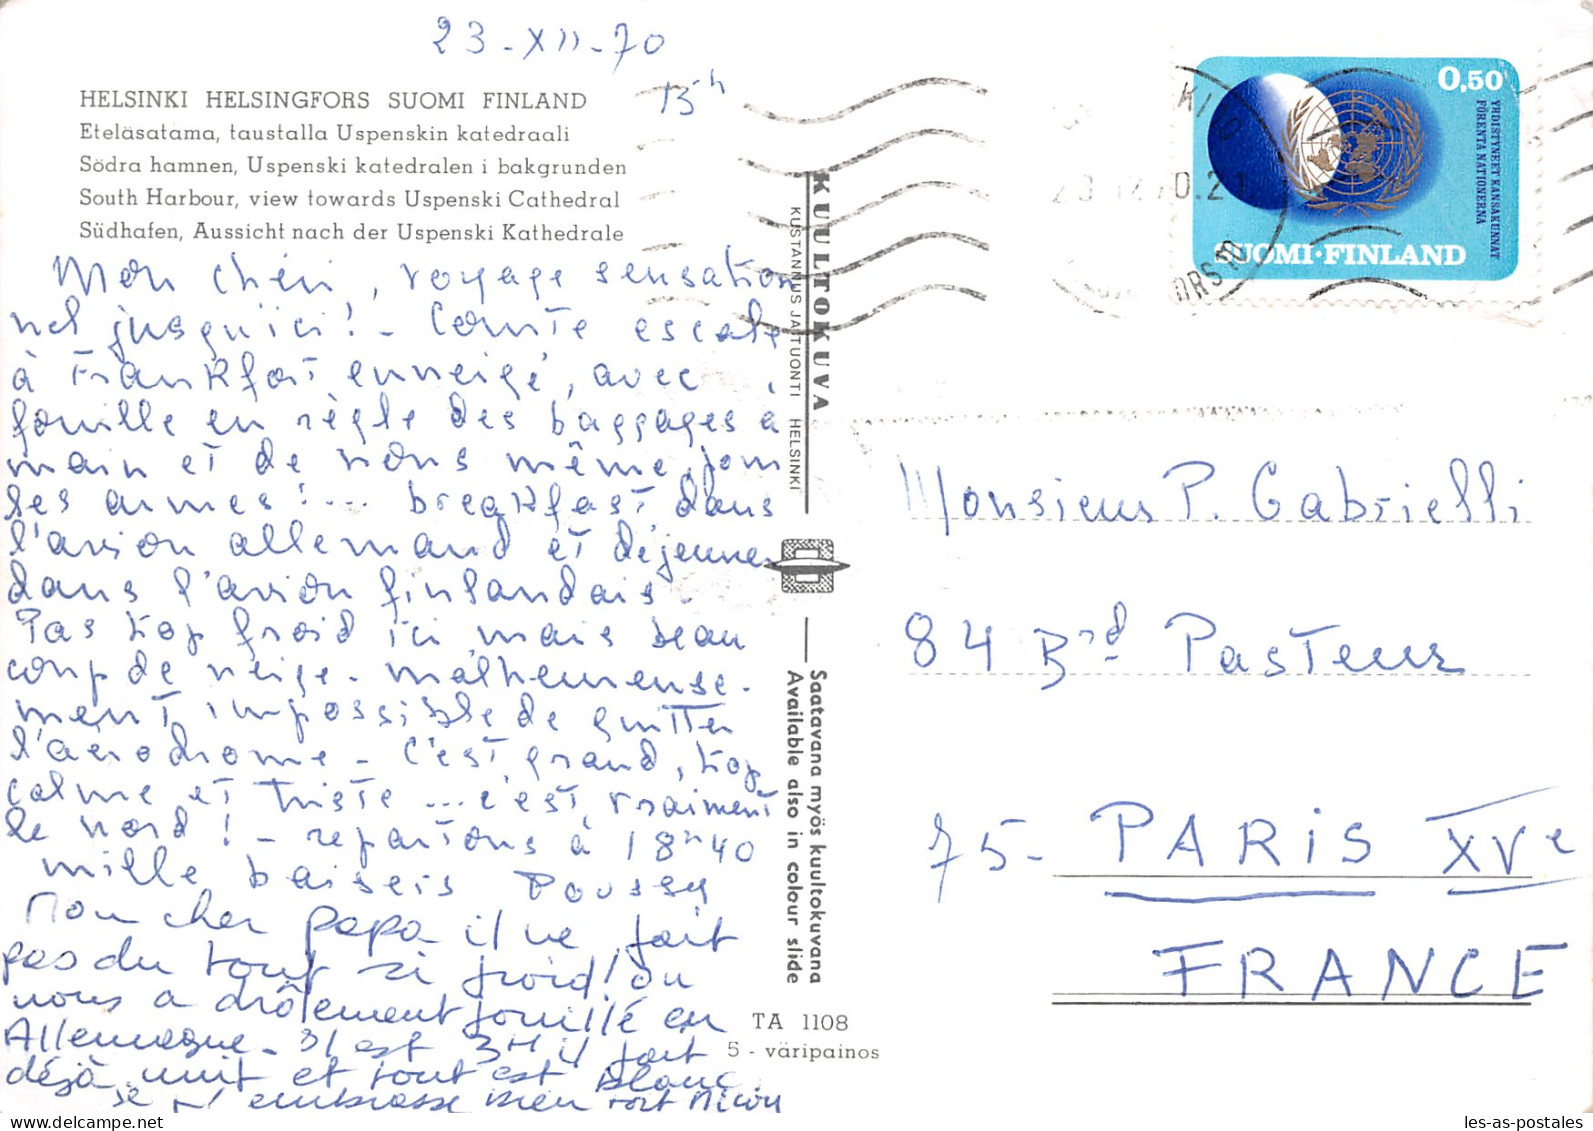 23-XII-70
15h
HELSINKI HELSINGFORS SUOMI FINLAND
Eteläsatama, taustalla Uspenskin katedraali
Södra hamnen, Uspenski katedralen i bakgrunden
South Harbour, view towards Uspenski Cathedral
Südhafen, Aussicht nach der Uspenski Kathedrale
Mon chéri, voyage sensation
nel jusqu'ici! - Courte escale
à Frankfort enneigé, avec
fouille en règle des baggages à
main et de nous même, pour
les armes!... breakfast dans
l'avion allemand et déjeuner
dans l'avion finlandais.
Pas trop froid ici mais beau
coup de neige. malheureuse-
ment, impossible de quitter
l'aérodrome - C'est grand, trop
calme et triste... c'est, vraiment
le nord! - repartons à 18h40
mille baisers Poussy
Mon cher papa il ne fait
pas du tout si froid! on
nous a drôlement fouillé en
Allemagne - Il est 3H il fait
déjà nuit et tout est blanc.
je t'embrasse bien fort
KUULTOKUVA
KUSTANNUS JA TUONTI HELSINKI
Saatavana myös kuultokuvana
Available also in colour slide
TA 1108
5 - väripainos
0,50
YHDISTYNEET KANSAKUNNAT
FÖRENTA NATIONERNA
SUOMI·FINLAND
Monsieur P. Gabrielli
84 Brd Pasteur
75 - PARIS XVe
FRANCE
les-as-postales.com